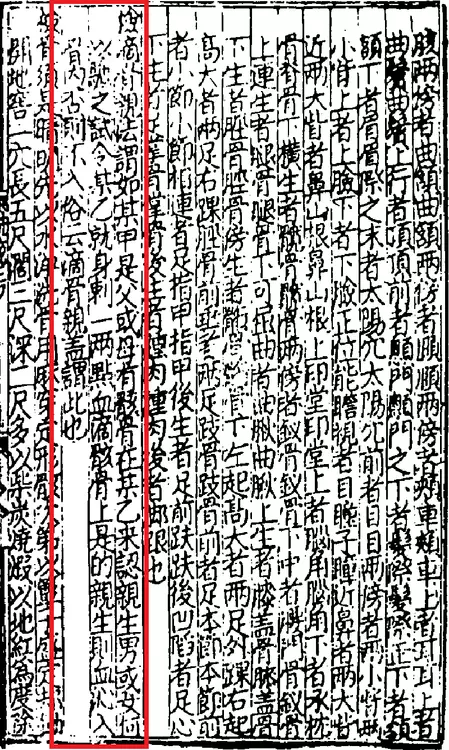 腮兩傍者曲頷曲頷兩傍者頤頤兩傍者頰車頰車上者耳耳上者
曲鬢曲鬢上行者頂頂前者顖門顖門之下者髮際髮際正下者額
額下者眉眉際之末者太陽穴太陽穴前者目目兩傍者兩小眥兩
小眥上者上瞼下者下瞼正位能瞻視者目瞳子瞳近鼻者兩大眥
近兩大眥者鼻山根鼻山根上印堂印堂上者腦角腦角下者承枕
骨脊骨下橫生者髖骨髖骨兩傍者釵骨釵骨下中者腰門骨釵骨
上連生者腿骨腿骨下可屈曲者曲䐐曲䐐上生者膝蓋骨膝蓋骨
下生者脛骨脛骨傍生者䯒骨䯒骨下左起高大者兩足外踝右起
高大者兩足右踝脛骨前垂者兩足跂骨跂骨前者足本節本節前
者小節小節相連者足指甲指甲後生者足前趺趺後凹陷者足心
下生者足掌骨掌骨後生者踵肉踵肉後者脚跟也
檢滴骨親法謂如某甲是父或母有骸骨在某乙來認親生男或女何
以驗之試令某乙就身刺一兩點血滴骸骨上是的親生則血沁入
骨內否則不入俗云滴骨親蓋謂此也
檢骨須是晴明先以水淨洗骨用麻穿定形骸次第以簟子盛定
開地窖一穴長五尺濶二尺深二尺多以柴炭燒煆以地紅為度除